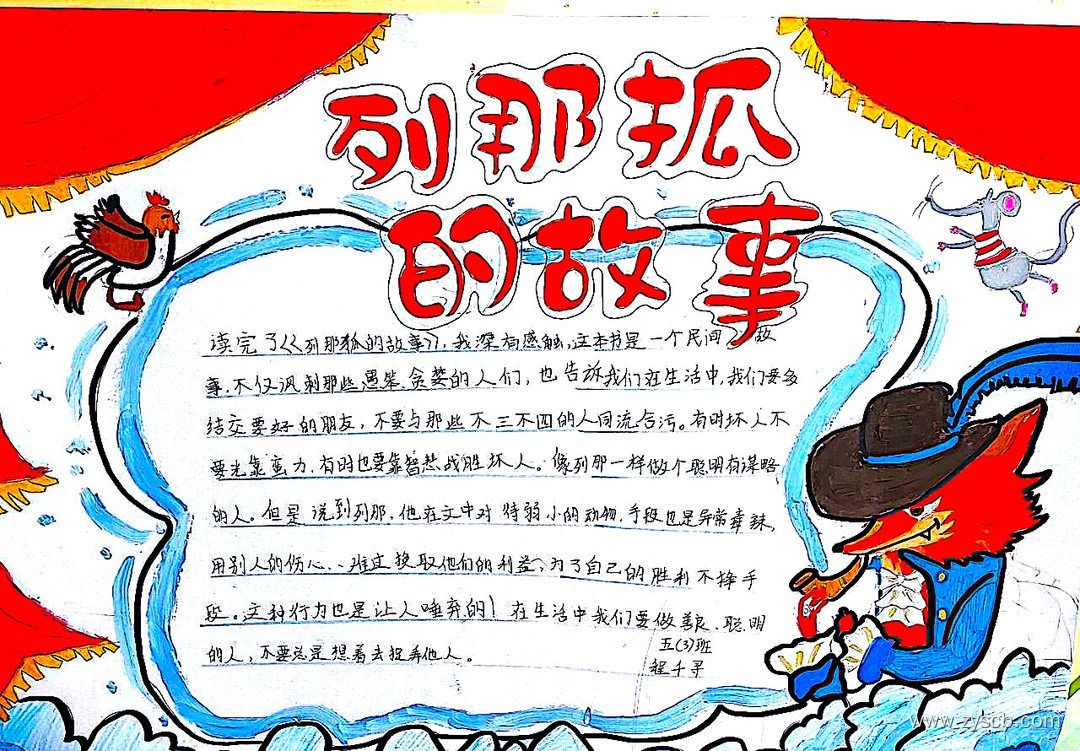 列那狐
的故事
读完了《列那狐的故事》,我深有感触,这本书是一个民间故
事,不仅讽刺那些愚笨、贪婪的人们,也告诉我们在生活中,我们要多
结交要好的朋友,不要与那些不三不四的人同流合污。有时坏人不
要光靠蛮力,有时也要靠智慧战胜坏人。像列那一样做个聪明有谋略
的人。但是说到列那,他在文中对待弱小的动物,手段也是异常毒辣,
用别人的伤心、难过换取他们的利益、为了自己的胜利不择手
段。这种行为也是让人唾弃的!在生活中我们要做善良、聪明
的人,不要总是想着去捉弄他人。
五(3)班
程千寻
www.zyscb.com